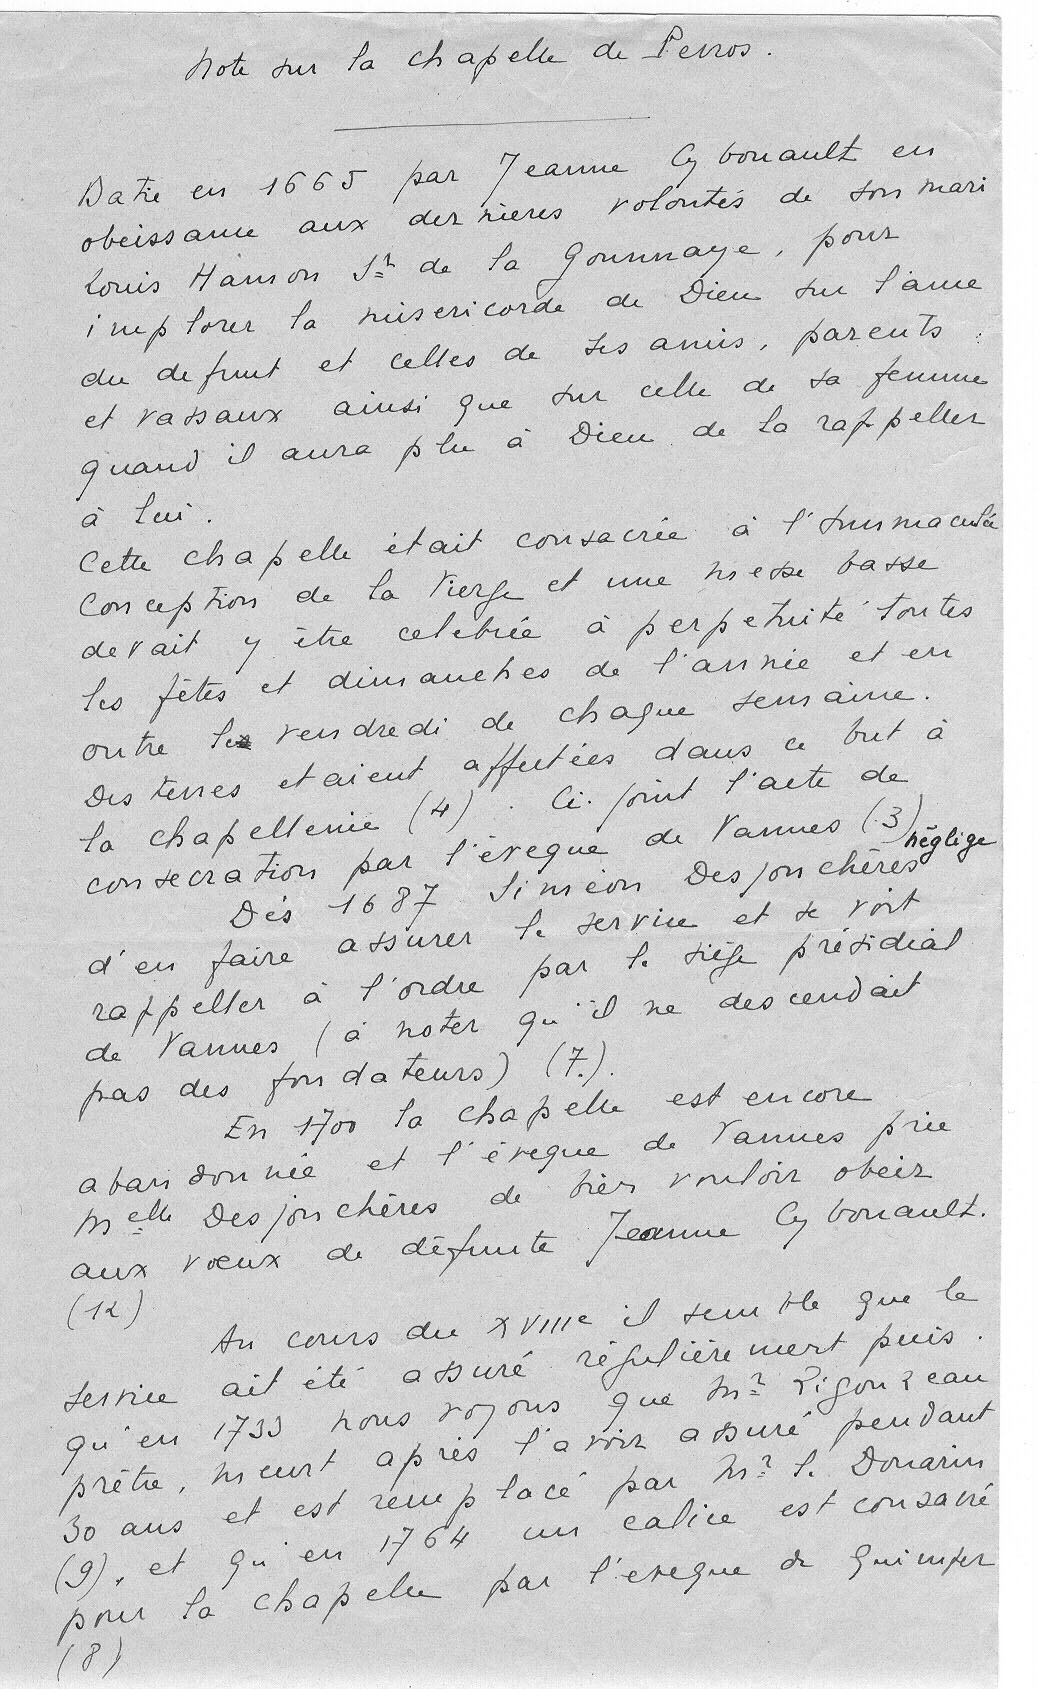 Note sur la chapelle de Perros.
Batie en 1665 par Jeanne Cybouault en
obeissance aux dernieres volontés de son mari
Louis Hamon Sr de la Gounnaye, pour
implorer la misericorde de Dieu sur l'ame
du defunt et celles de ses amis, parents
et vassaux ainsi que sur celle de sa femme
quand il aura plu à Dieu de la rappeller
à lui.
Cette chapelle était consacrée à l'Immaculée
Conception de la Vierge et une messe basse
devait y être celebrée à perpetuité toutes
les fêtes et dimanches de l'année et en
outre le vendredi de chaque semaine.
Des terres etaient affectées dans ce but à
la chapellenie (4). Ci-joint l'acte de
consecration par l'évèque de Vannes (3)
Dès 1687 Siméon Desjonchères néglige
d'en faire assurer le service et se voit
rappeller à l'ordre par le siège présidial
de Vannes (à noter qu'il ne descendait
pas des fondateurs) (7.).
En 1700 la chapelle est encore
abandonnée et l'évèque de Vannes prie
Melle Desjonchères de bien vouloir obeir
aux voeux de défunte Jeanne Cybouault.
(12)
Au cours du XVIIIe il semble que le
service ait été assuré régulièrement puis-
qu'en 1733 nous voyons que Mr Rigouzeau
prêtre, meurt après l'avoir assuré pendant
30 ans et est remplacé par Mr le Douarin
(9), et qu'en 1764 un calice est consacré
pour la chapelle par l'eveque de Quimper
(8)